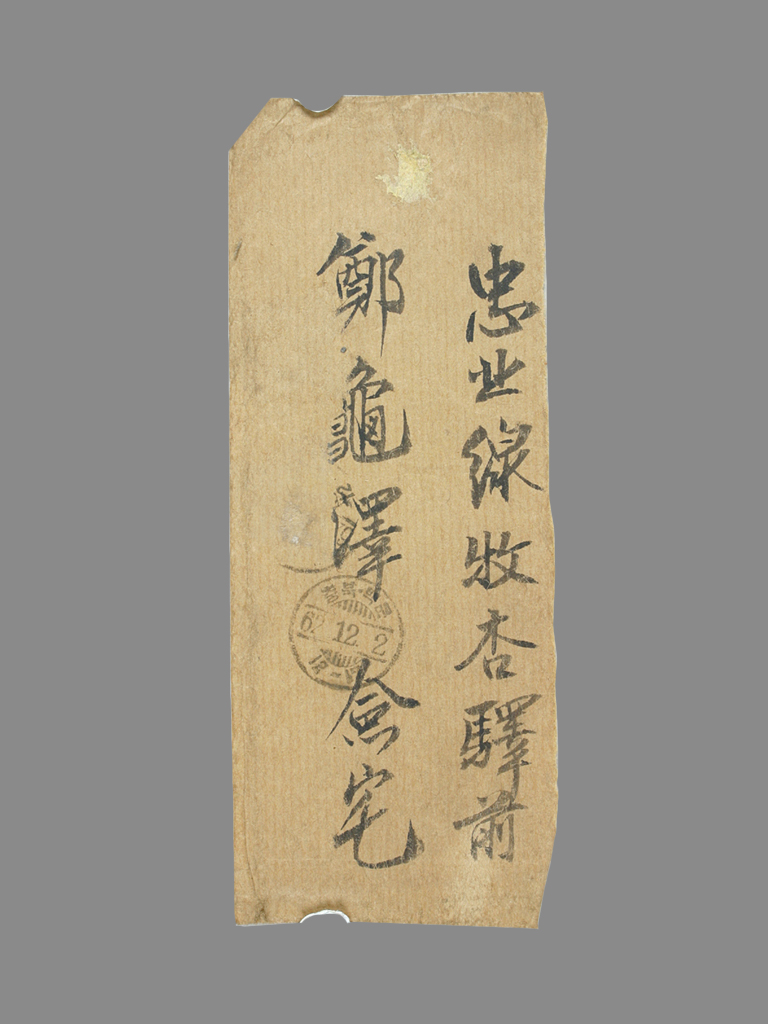 忠北線牧杏驛前
鄭龜澤 僉宅
62.12.2